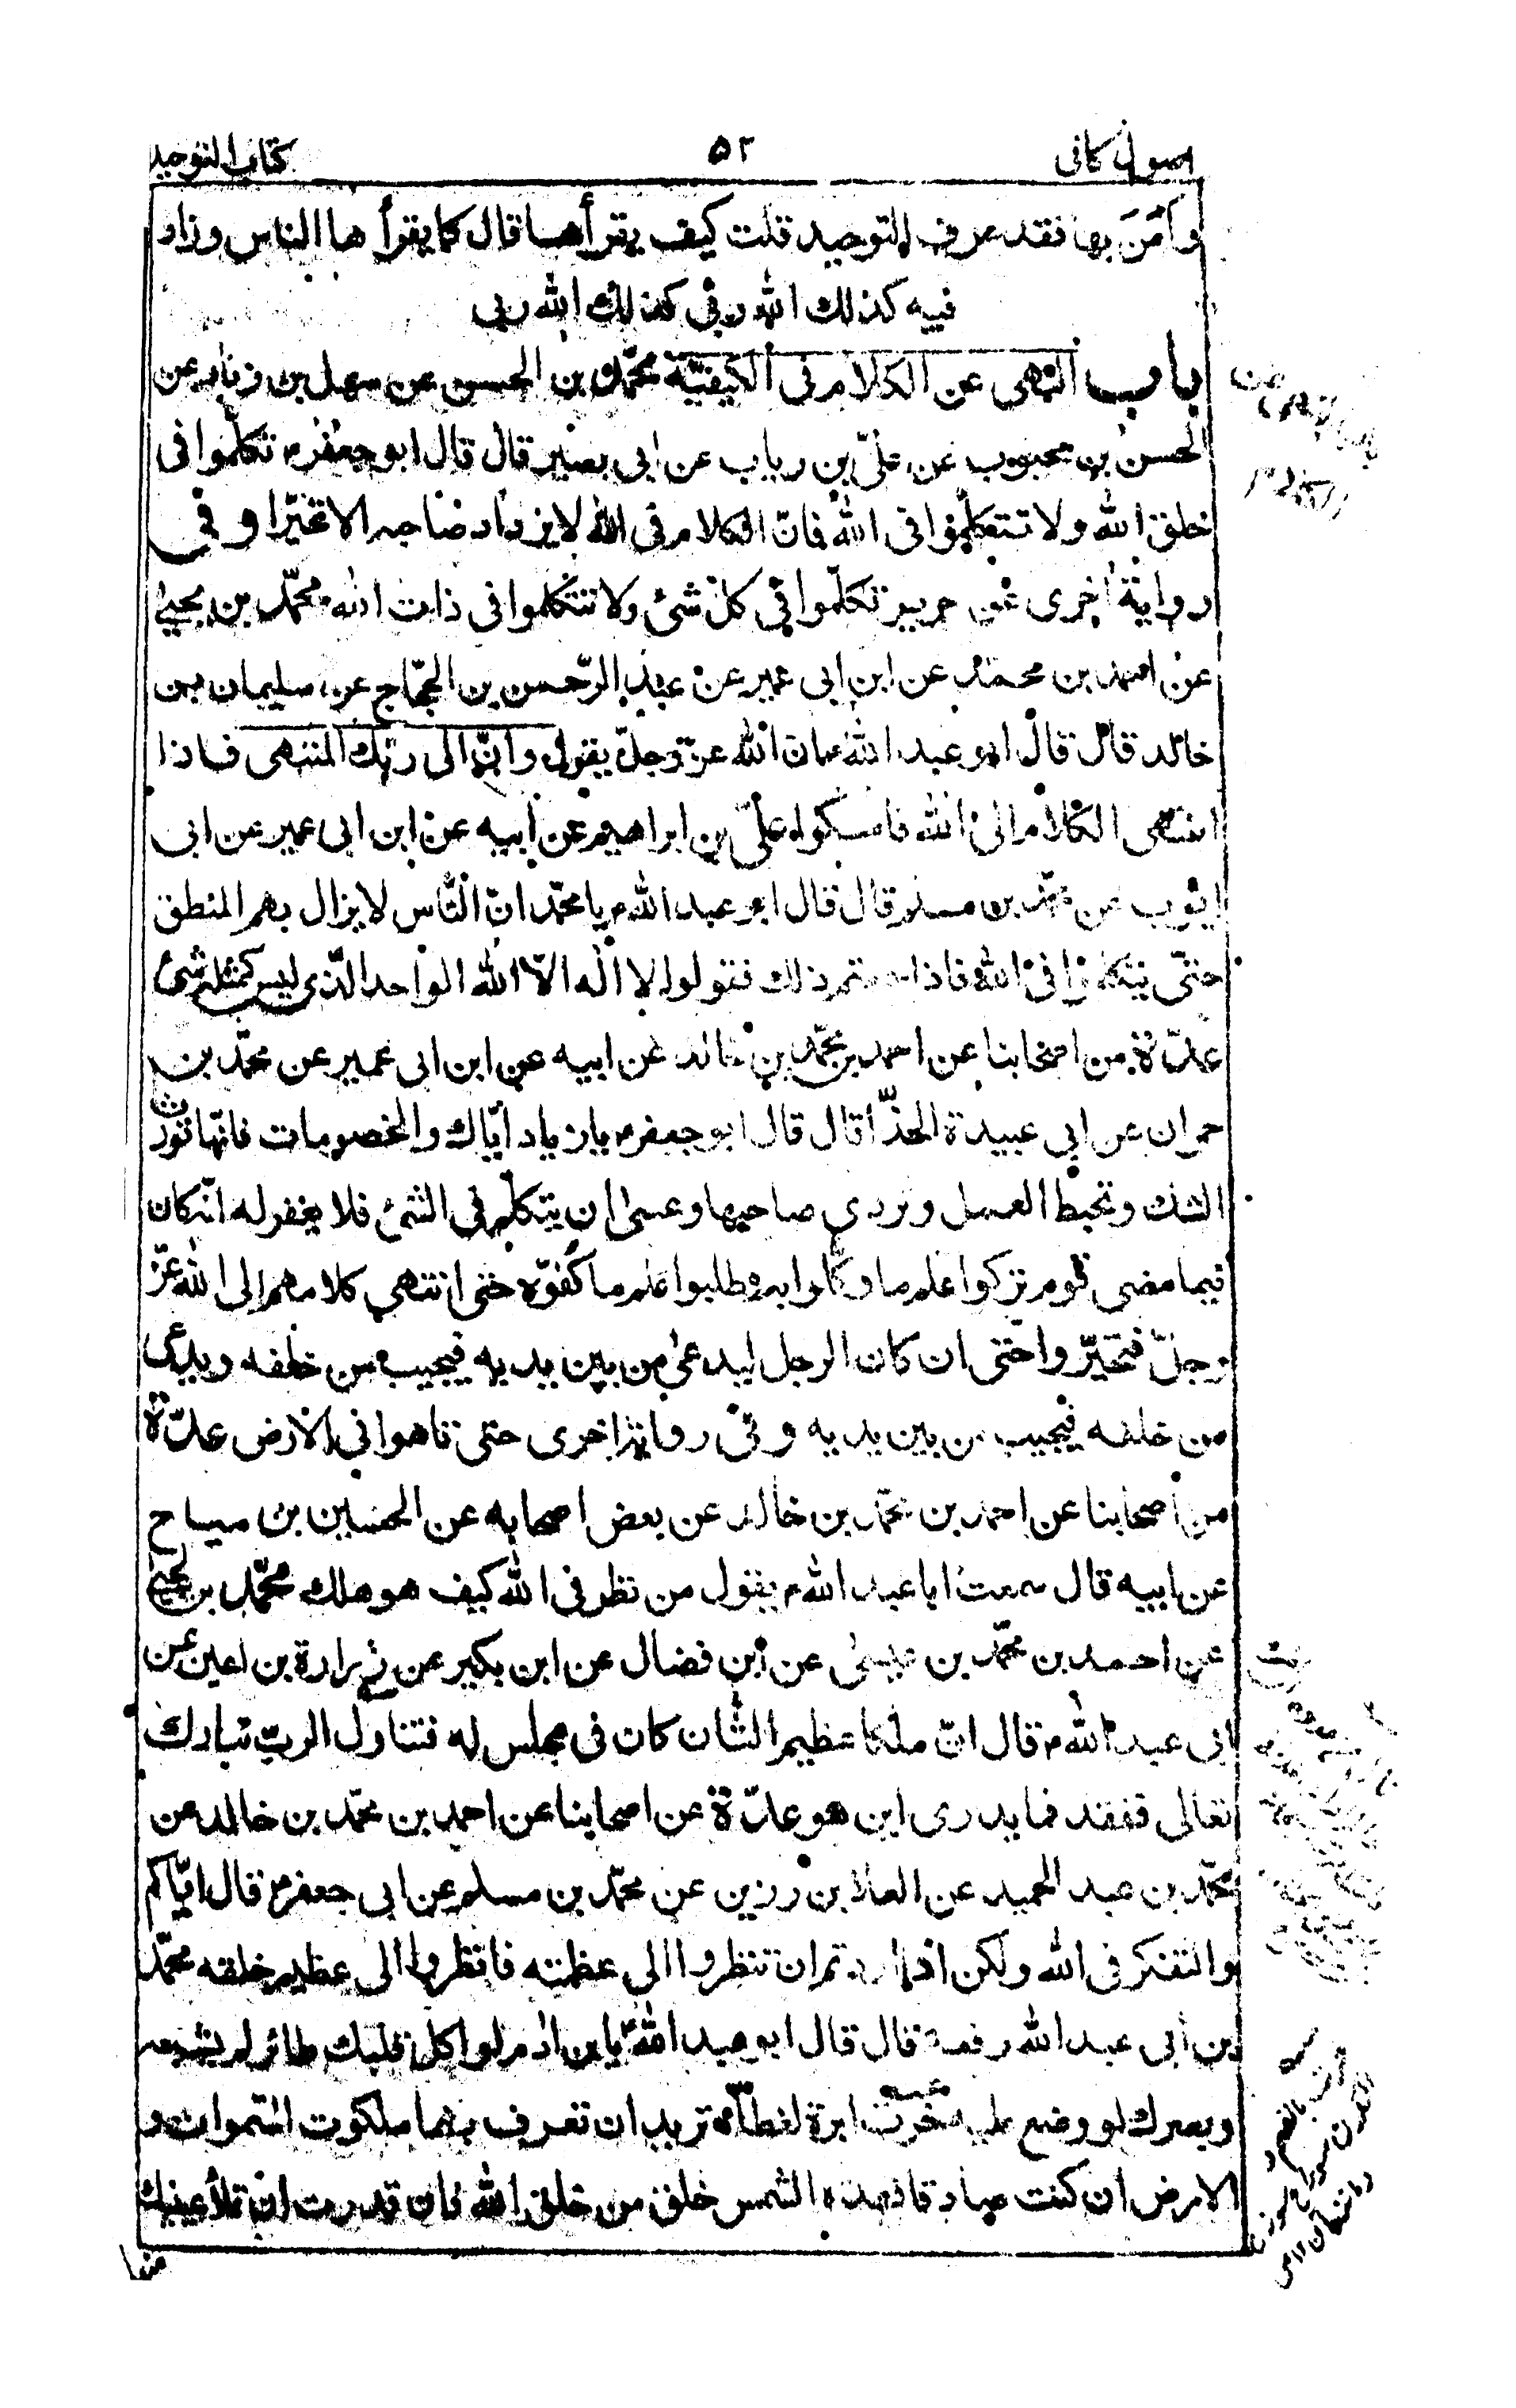 اصول كافى ٥٢ كتاب التوحيد
وآمَنَ بها فقد عرف التوحيد قلت كيف يقرأها قال كما يقرأ ها الناس وزاد
فيه كذلك الله ربى كذلك الله ربى
باب النهى عن الكلام فى الكيفيّة محمّد بن الحسن عن سهل بن زياد عن
الحسن بن محبوب عن علىّ بن رياب عن ابى بصير قال قال ابو جعفرم تكلّموا فى
خلق الله ولا تتكلّموا فى الله فانّ الكلام فى الله لا يزداد صاحبه الا تحيّرا و فى
رواية اخرى عن حريز تكلّموا فى كل شئ ولا تتكلموا فى ذات الله محمّد بن يحيى
عن احمد بن محمّد عن ابن ابى عمير عن عبد الرّحمن بن الحجّاج عن سليمان بن
خالد قال قال ابو عبد الله م ان الله عزّ وجلّ يقول وانّ الى ربّك المنتهى فاذا
انتهى الكلام الى الله فامسكوا علىّ بن ابراهيم عن ابيه عن ابن ابى عمير عن ابى
ايّوب عن محمّد بن مسلم قال قال ابو عبد الله م يا محمّد انّ النّاس لا يزال بهم المنطق
حتّى يتكلموا فى الله فاذا سمعتم ذلك فقولوا لا اله الّا الله الواحد الّذى ليس كمثله شئ
عدّة من اصحابنا عن احمد بن محمّد بن خالد عن ابيه عن ابن ابى عمير عن محمّد بن
حمران عن ابى عبيدة الحذّاء قال قال ابو جعفرم يا زياد ايّاك والخصومات فانّها تورث
الشك وتحبط العمل وتردى صاحبها وعسى ان يتكلّم فى الشئ فلا يغفر له انّه كان
فيما مضى قوم تركوا علم ما وكلوا به وطلبوا علم ما كفوّه حتى انتهى كلامهم الى الله عزّ
وجلّ فتحيّروا حتى ان كان الرجل ليدعى من بين يديه فيجيب من خلفه ويدعى
من خلفه فيجيب من بين يديه و فى رواية اخرى حتى تاهوا فى الارض عدّة
من اصحابنا عن احمد بن محمّد بن خالد عن بعض اصحابه عن الحسين بن مياح
عن ابيه قال سمعت ابا عبد الله م يقول من نظر فى الله كيف هو هلك محمّد بن يحيى
عن احمد بن محمّد بن عيسى عن ابن فضال عن ابن بكير عن زرارة بن اعين عن
ابى عبد الله م قال انّ ملكا عظيم الشّان كان فى مجلس له فتناول الربّ تبارك
تعالى ففقد فما يدرى اين هو عدّة عن اصحابنا عن احمد بن محمّد بن خالد عن
محمّد بن عبد الحميد عن العلا بن رزين عن محمّد بن مسلم عن ابى جعفرم قال ايّاكم
والتفكر فى الله ولكن اذا اردتم ان تنظروا الى عظمته فانظروا الى عظيم خلقه محمّد
بن ابى عبد الله رفعه قال قال ابو عبد الله يا بن ادم لو اكل قلبك طائر لم يشبعه
وبصرك لو وضع عليه خرت ابرة لغطّاه تريد ان تعرف بهما ملكوت السّموات و
الارض ان كنت صادقا فهذه الشمس خلق من خلق الله فان قدرت ان تملأ عينيك
منها